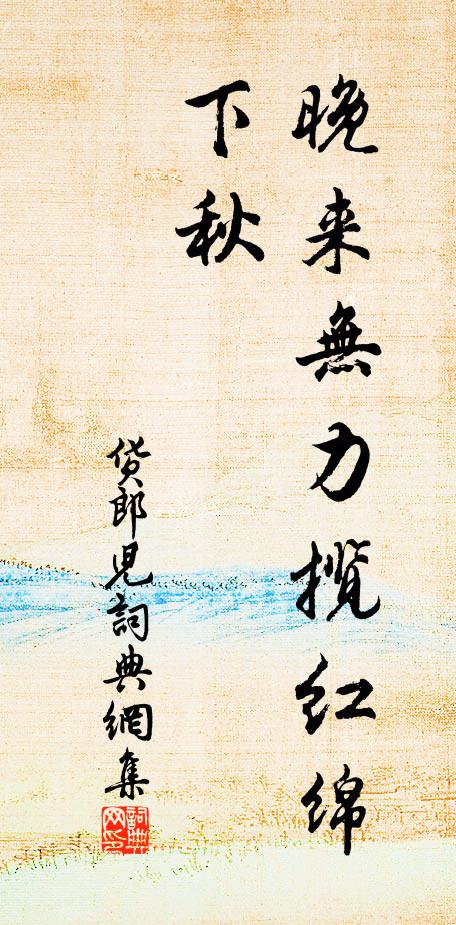 晚来無力揽红绵
下秋
货郎兒詞典網集
詞典网印